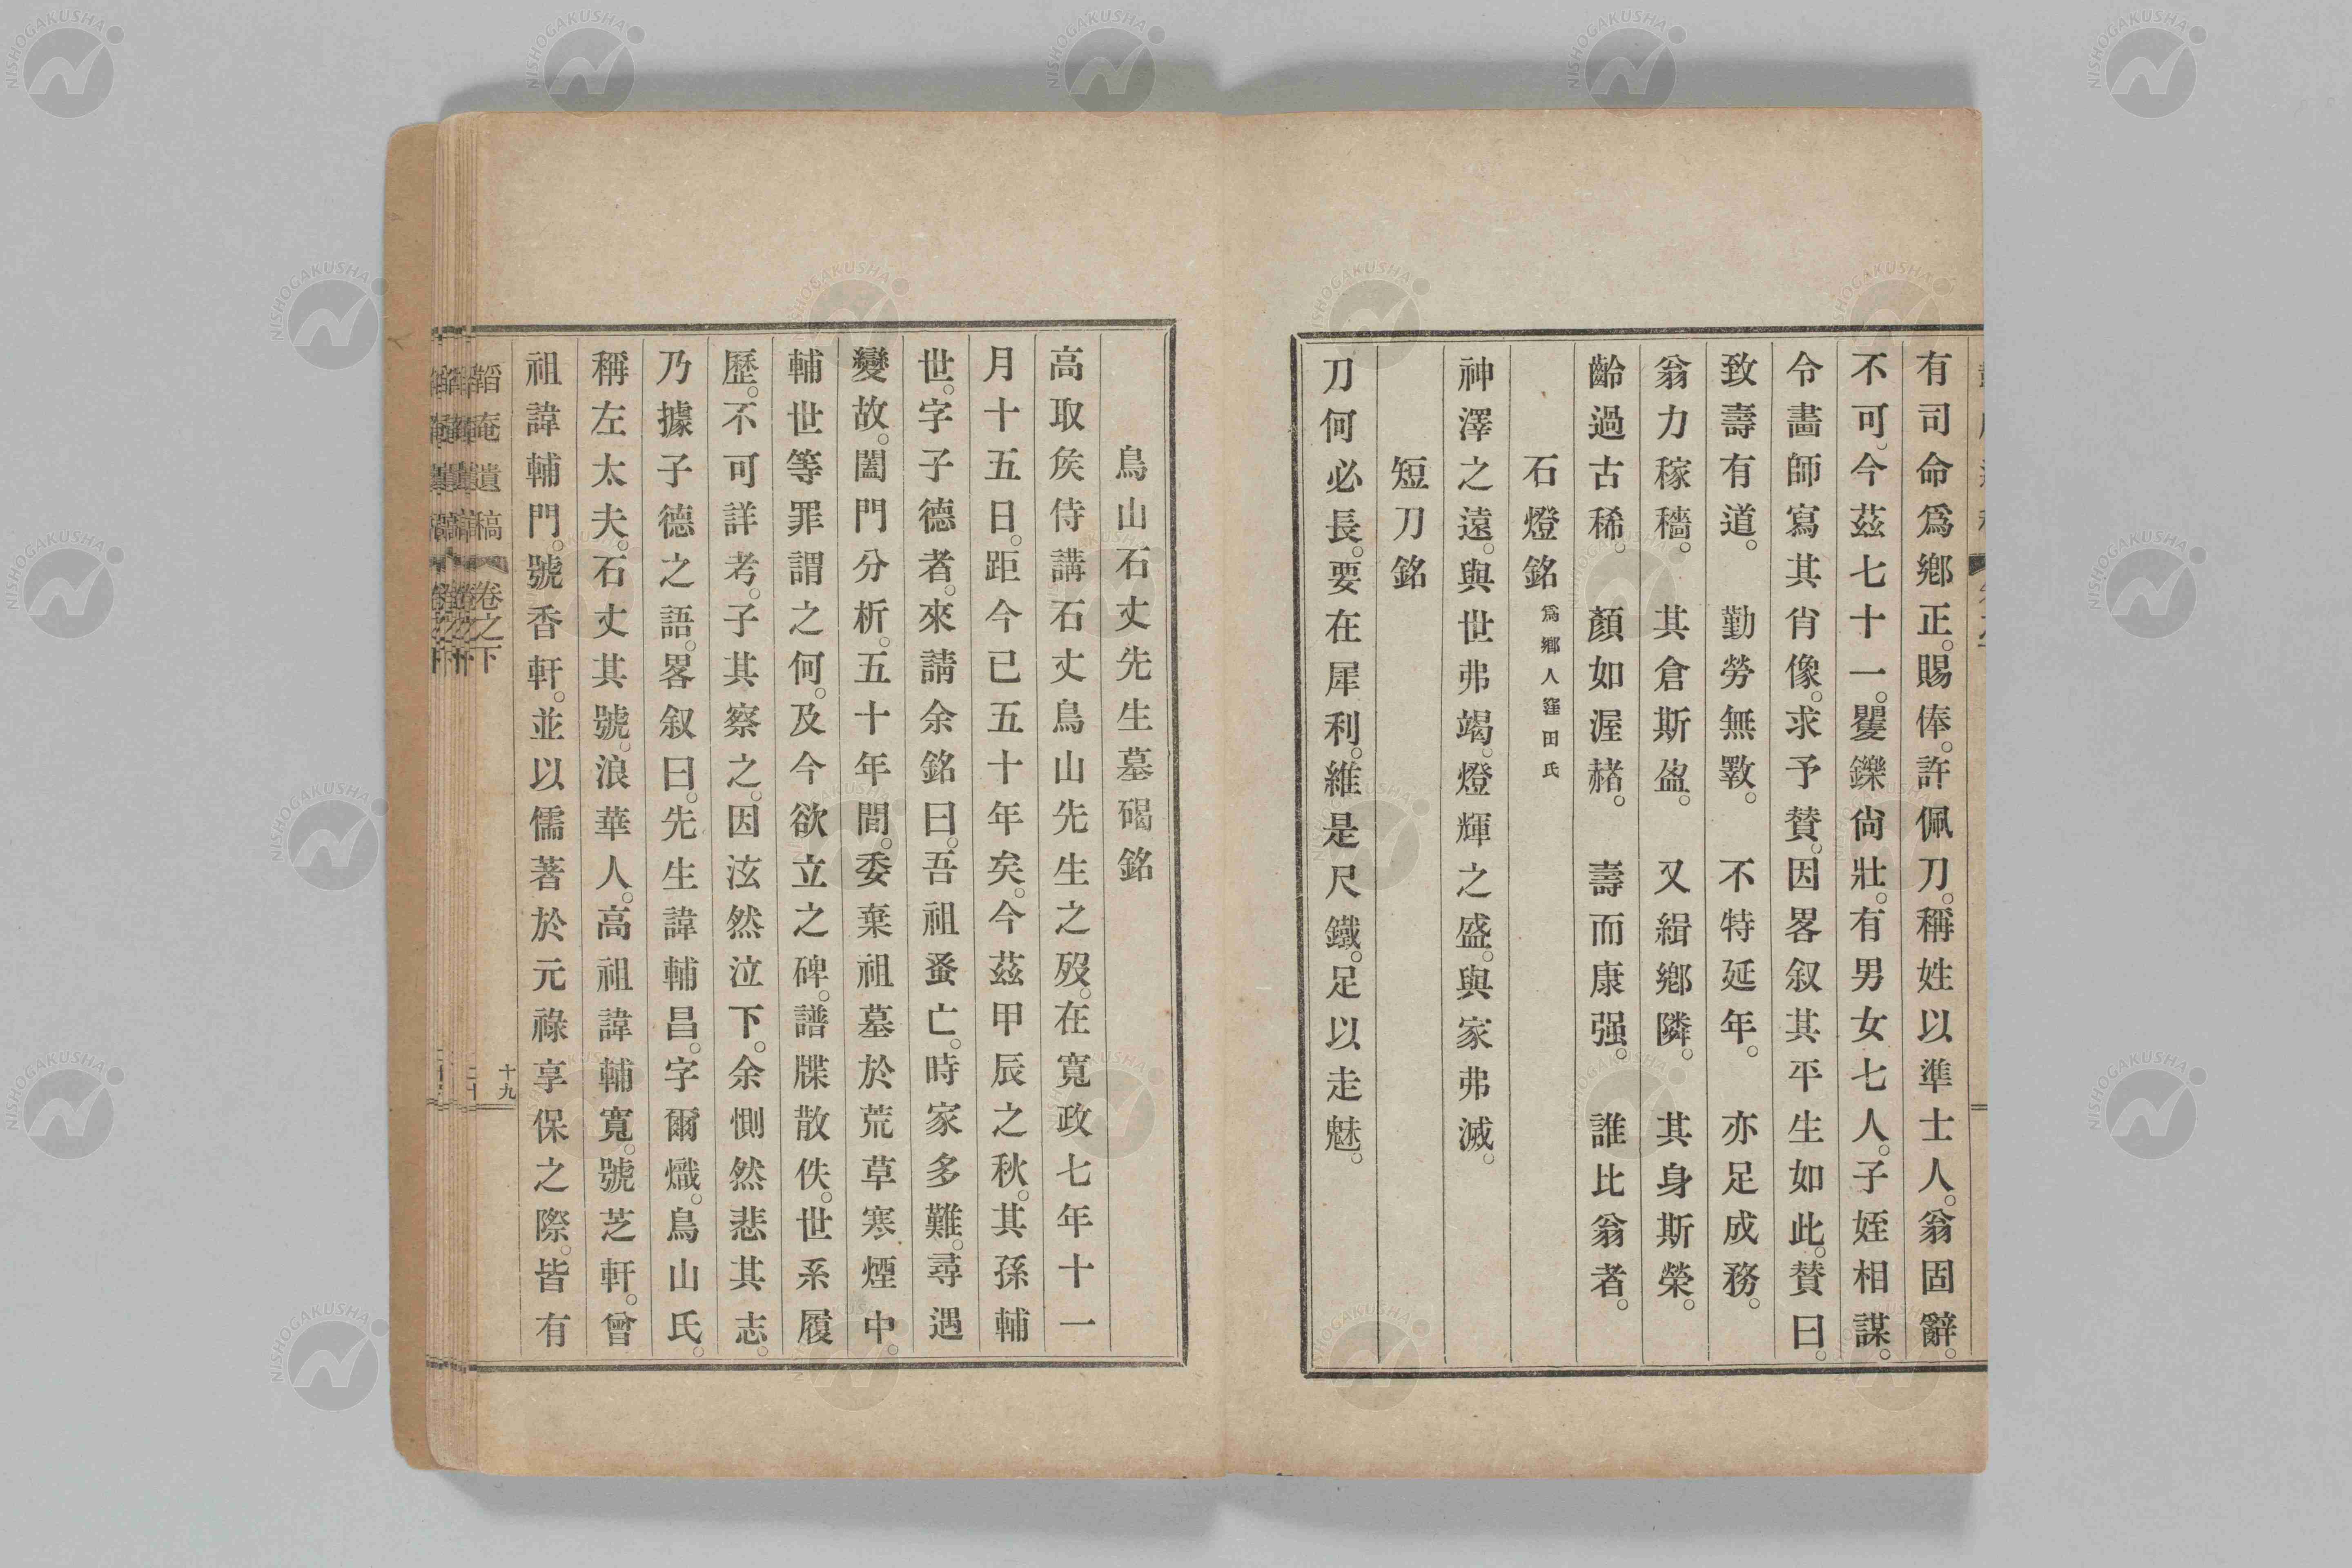 有司命爲鄕正。賜俸。許佩刀。稱姓以準士人。翁固辭。
不可。今茲七十一。矍鑠尙壯。有男女七人。子姪相謀。
令畵師寫其肖像。求予賛。因畧叙其平生如此。賛曰。
致壽有道。　勤勞無斁。　不特延年。　亦足成務。
翁力稼穡。　其倉斯盈。　又緝鄕隣。　其身斯榮。
齡過古稀。　顏如渥赭。　壽而康强。　誰比翁者。
石燈銘　爲鄕人窪田氏
神澤之遠。與世弗竭。燈輝之盛。與家弗滅。
短刀銘
刀何必長。要在犀利。維是尺鐵。足以走魅。
鳥山石丈先生墓碣銘
高取矦侍講石丈鳥山先生之歿。在寬政七年十一
月十五日。距今已五十年矣。今茲甲辰之秋。其孫輔
世。字子德者。來請余銘曰。吾祖蚤亡。時家多難。尋遇
變故。闔門分析。五十年間。委棄祖墓於荒草寒煙中。
輔世等罪謂之何。及今欲立之碑。譜牒散佚。世系履
歷。不可詳考。子其察之。因泫然泣下。余惻然悲其志。
乃據子德之語。畧叙曰。先生諱輔昌。字爾熾。鳥山氏。
稱左太夫。石丈其號。浪華人。高祖諱輔寬。號芝軒。曾
祖諱輔門。號香軒。並以儒著於元祿享保之際。皆有
韜庵遺稿　卷之下　十九
NISHOGAKUSHA